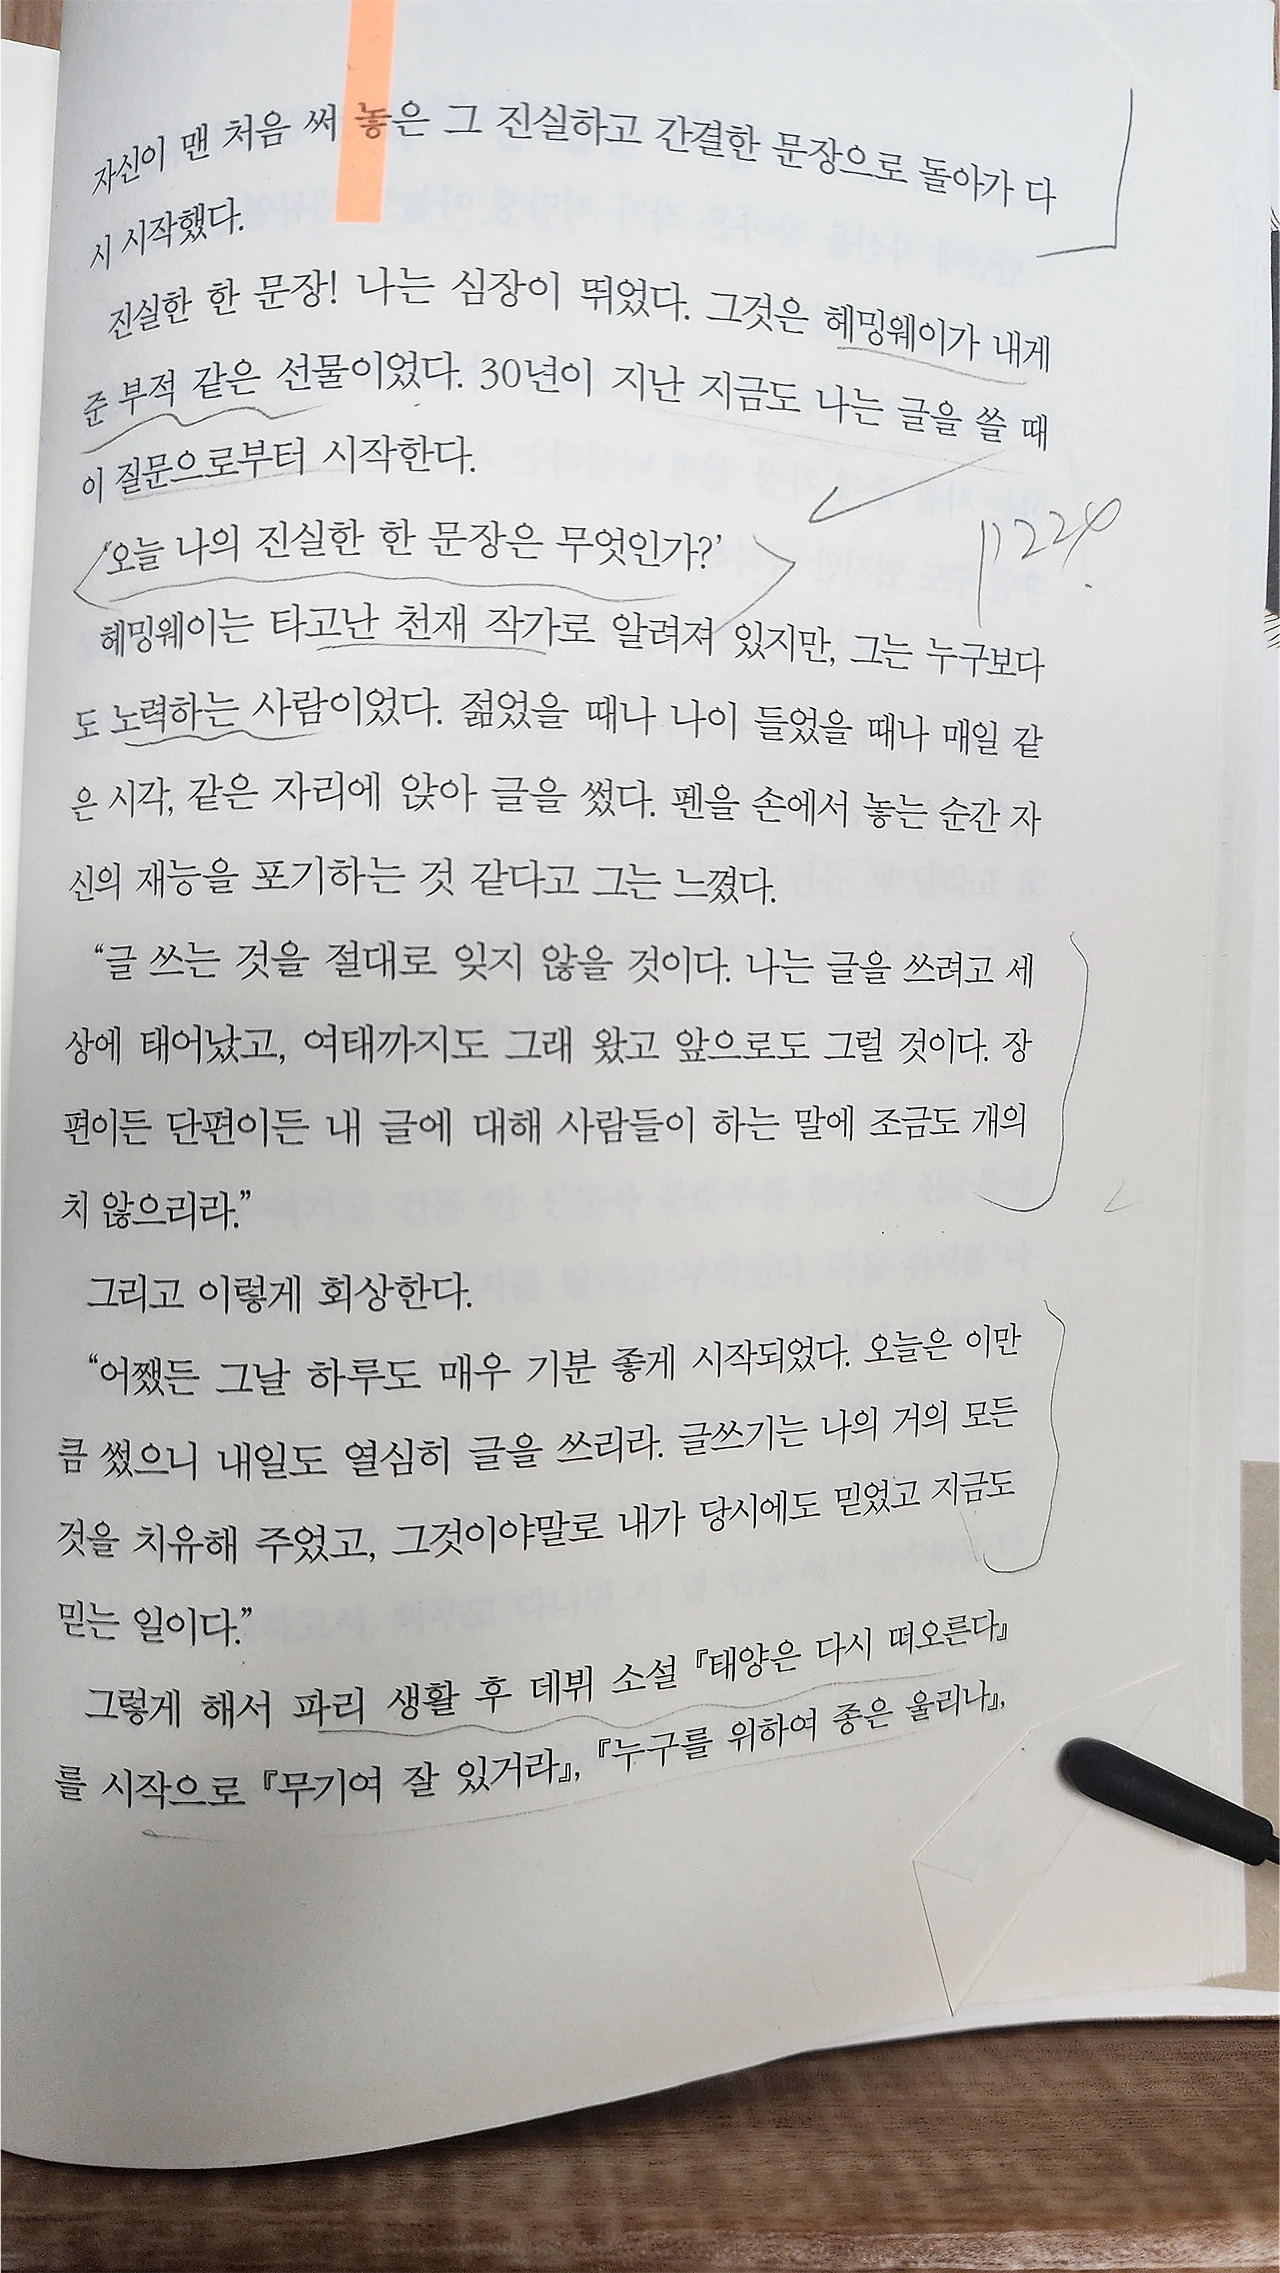 자신이 맨 처음 써 놓은 그 진실하고 간결한 문장으로 돌아가 다
시 시작했다.
진실한 한 문장! 나는 심장이 뛰었다. 그것은 헤밍웨이가 내게
준 부적 같은 선물이었다. 30년이 지난 지금도 나는 글을 쓸 때
이 질문으로부터 시작한다.
‘오늘 나의 진실한 한 문장은 무엇인가?’
헤밍웨이는 타고난 천재 작가로 알려져 있지만, 그는 누구보다
도 노력하는 사람이었다. 젊었을 때나 나이 들었을 때나 매일 같
은 시각, 같은 자리에 앉아 글을 썼다. 펜을 손에서 놓는 순간 자
신의 재능을 포기하는 것 같다고 그는 느꼈다.
“글 쓰는 것을 절대로 잊지 않을 것이다. 나는 글을 쓰려고 세
상에 태어났고, 여태까지도 그래 왔고 앞으로도 그럴 것이다. 장
편이든 단편이든 내 글에 대해 사람들이 하는 말에 조금도 개의
치 않으리라.”
그리고 이렇게 회상한다.
“어쨌든 그날 하루도 매우 기분 좋게 시작되었다. 오늘은 이만
큼 썼으니 내일도 열심히 글을 쓰리라. 글쓰기는 나의 거의 모든
것을 치유해 주었고, 그것이야말로 내가 당시에도 믿었고 지금도
믿는 일이다.”
그렇게 해서 파리 생활 후 데뷔 소설 『태양은 다시 떠오른다』
를 시작으로 『무기여 잘 있거라』, 『누구를 위하여 종은 울리나』,